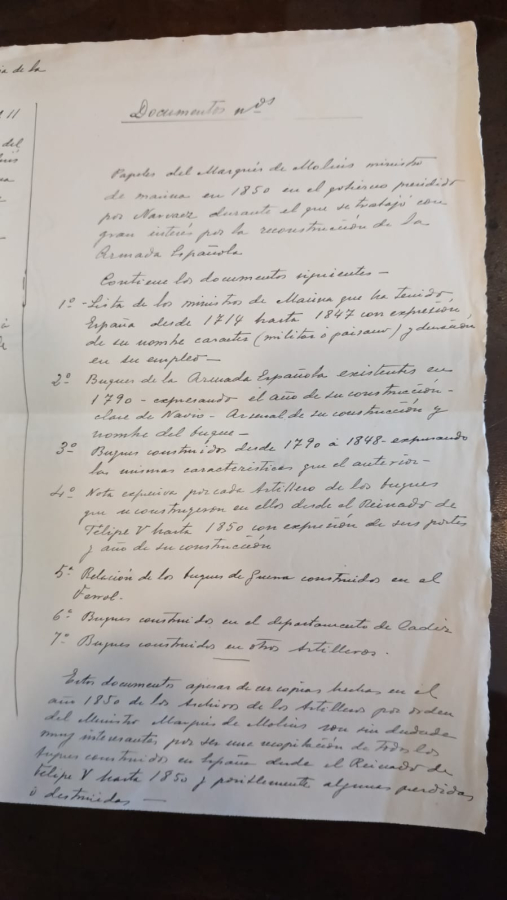 ia de la
11
del
Documentos nos
Papeles del Marqués de Molins ministro
de marina en 1850 en el gobierno presidido
por Narvaez durante el que se trabajó con
gran interés por la reconstrucción de la
Armada Española
Contiene los documentos siguientes —
1º - Lista de los ministros de Marina que ha tenido
España desde 1714 hasta 1847 con expresión
de su nombre caracter (militar ó paisano) y duración
en su empleo —
2º Buques de la Armada Española existentes en
1790 - expresando el año de su construcción -
clase de Navio - Arsenal de su construcción y
nombre del buque —
3º Buques construidos desde 1790 á 1848 - expresando
las mismas caracteristicas que el anterior -
4º Nota expresiva por cada Astillero de los buques
que se construyeron en ellos desde el Reinado de
Felipe V hasta 1850 con expresión de sus portes
y año de su construcción
5º Relación de los buques de guerra construidos en el
Ferrol -
6º Buques construidos en el departamento de Cadiz
7º Buques construidos en otros Astilleros -
Estos documentos apesar de ser copias hechas en el
año 1850 de los Archivos de los Astilleros por orden
del Ministro Marqués de Molins son sin duda
muy interesantes por ser una recopilación de todos los
buques construidos en España desde el Reinado de
Felipe V hasta 1850 y posiblemente algunas perdidas
ó destruidas —